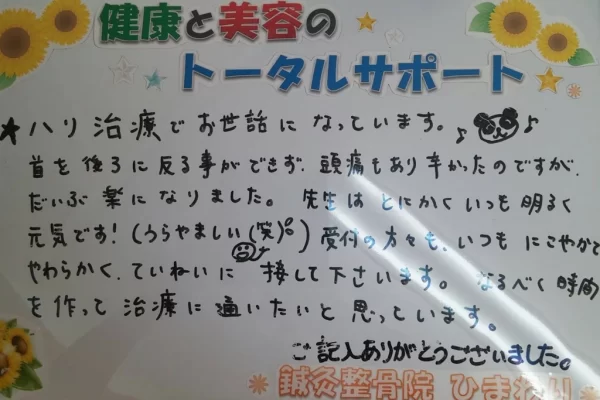 健康と美容の
トータルサポート
★ハリ治療でお世話になっています。♪ ♪
首を後ろに反る事ができず、頭痛もあり辛かったのですが、
だいぶ楽になりました。先生はとにかくいつも明るく
元気です!(うらやましい(笑)。)受付の方々も、いつもにこやかで
やわらかく、ていねいに接して下さいます。なるべく時間
を作って治療に通いたいと思っています。
ご記入ありがとうございました。
鍼灸整骨院 ひまわり